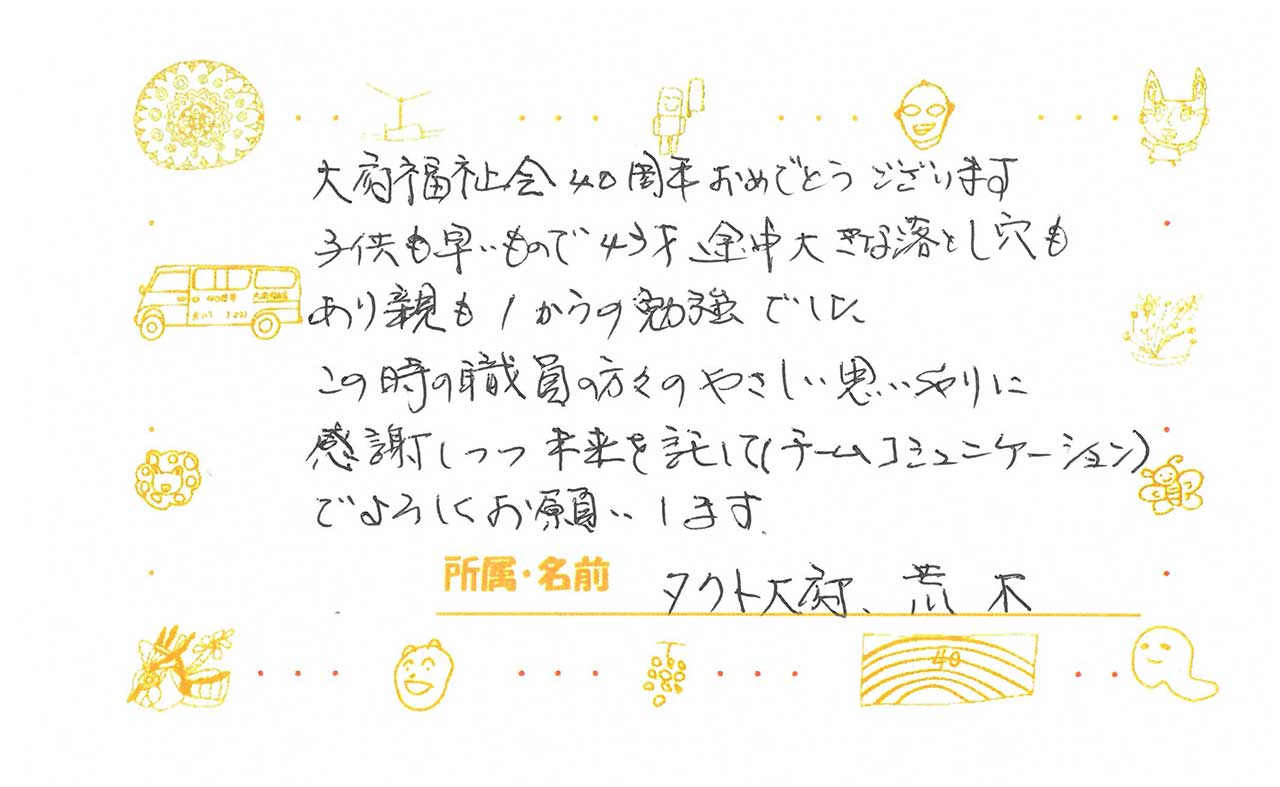 大府福祉会40周年おめでとうございます
子供も早いもので43才途中大きな落とし穴も
あり親も1からの勉強でした、
この時の職員の方々のやさしい思いやりに
感謝しつつ未来を託して(チームコミュニケーション)
でよろしくお願いします.
所属・名前 タクト大府、荒木
40周年 大府福祉会
40